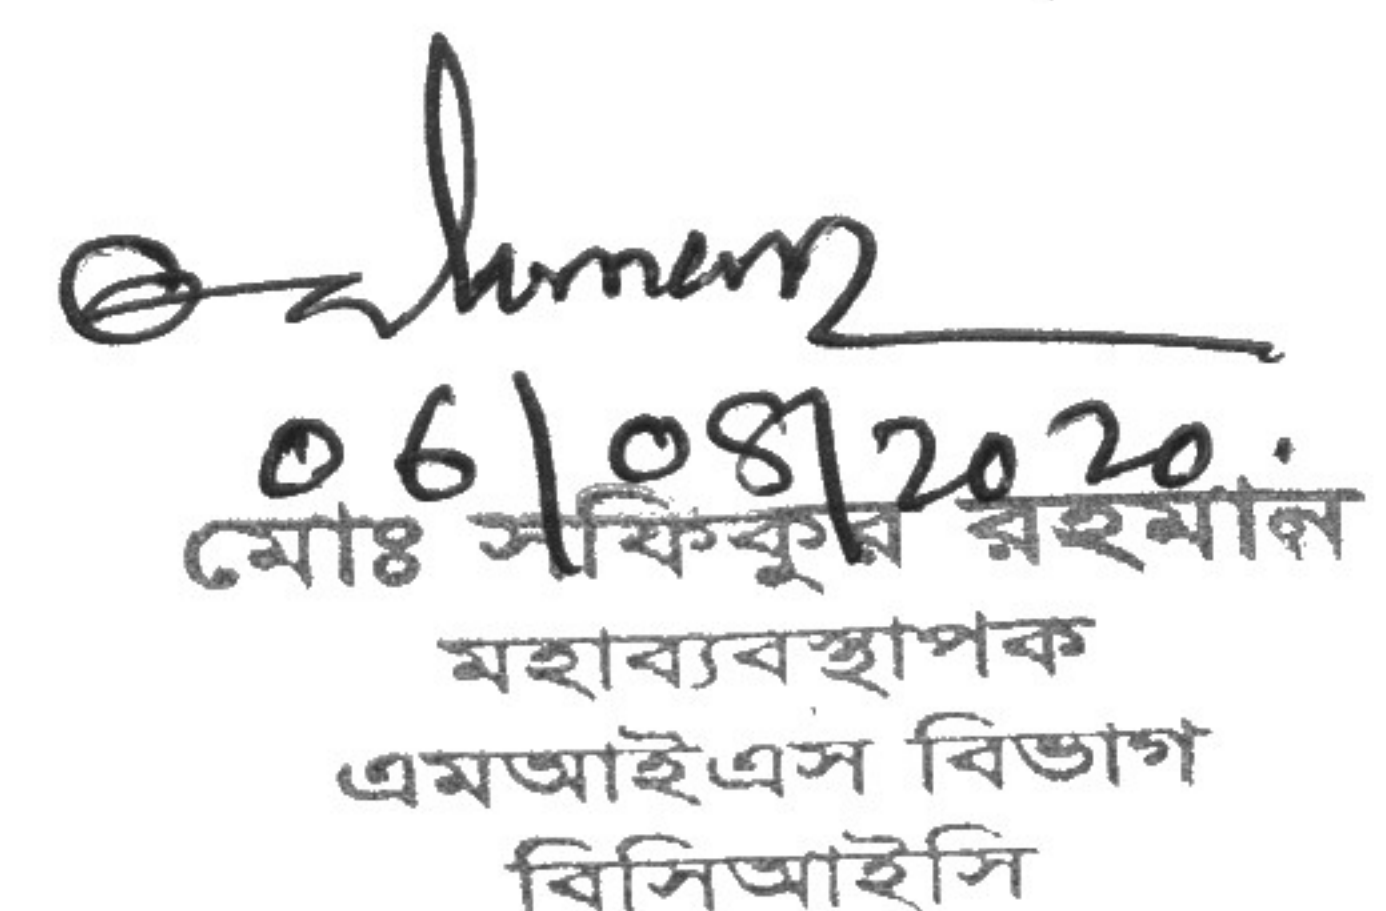 06/08/2020.
মোঃ সফিকুর রহমান
মহাব্যবস্থাপক
এমআইএস বিভাগ
বিসিআইসি